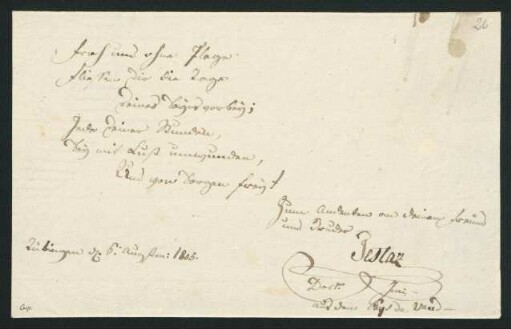 26
Froh und ohne Plage
fließen dir die Tage
deines vorbey;
Jede deiner Stunden,
Sey mit Lust umwunden,
Und von Sorgen frey!
Zum Andenken an deinen Freund
und Bruder
Tübingen d. 6. August 1805.
aus dem